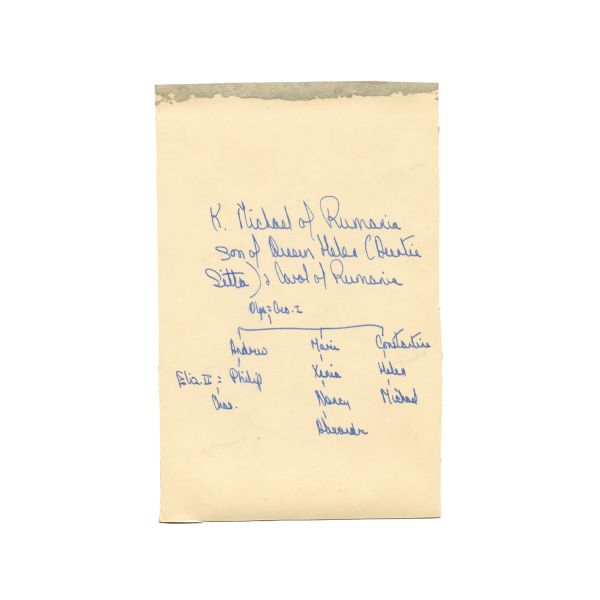 K. Michael of Rumania
son of Queen Helen (Auntie
Sitta) & Carol of Rumania
Olga = Geo. I
Andrew Marie Constantine
Xenia Helen
Eliz. II = Philip
Nancy Michael
Chas.
Alexandra